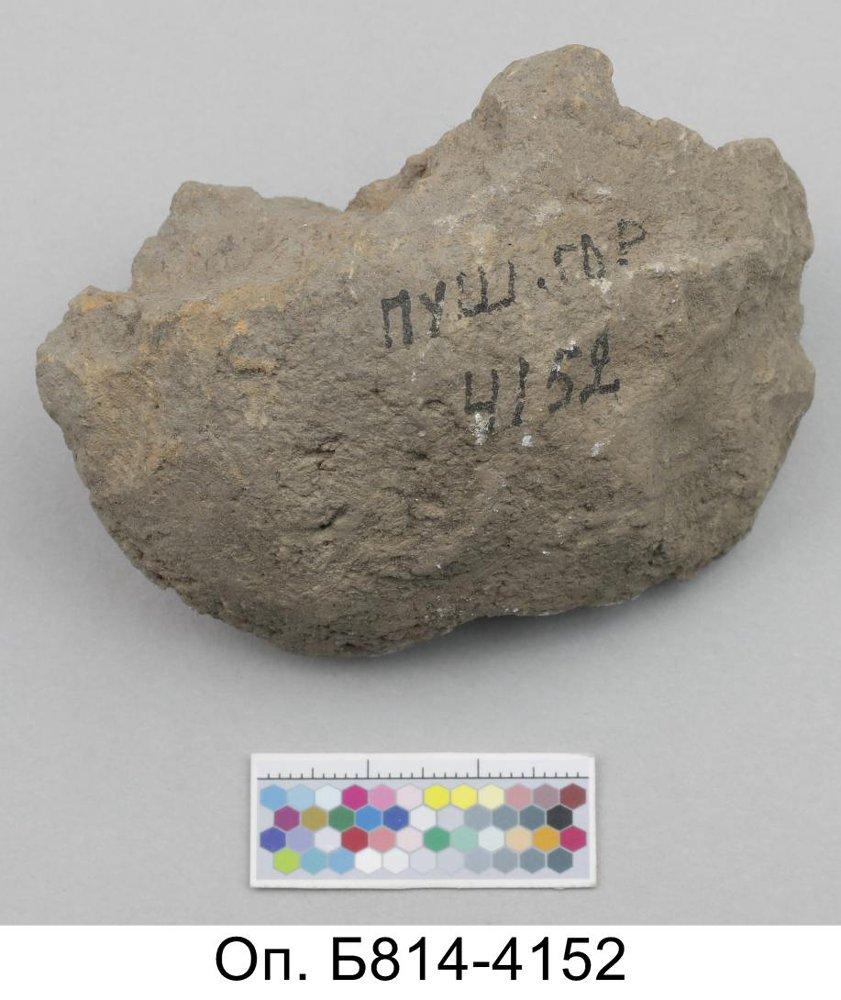 ПУШ.ГОР
4152
Оп. Б814-4152